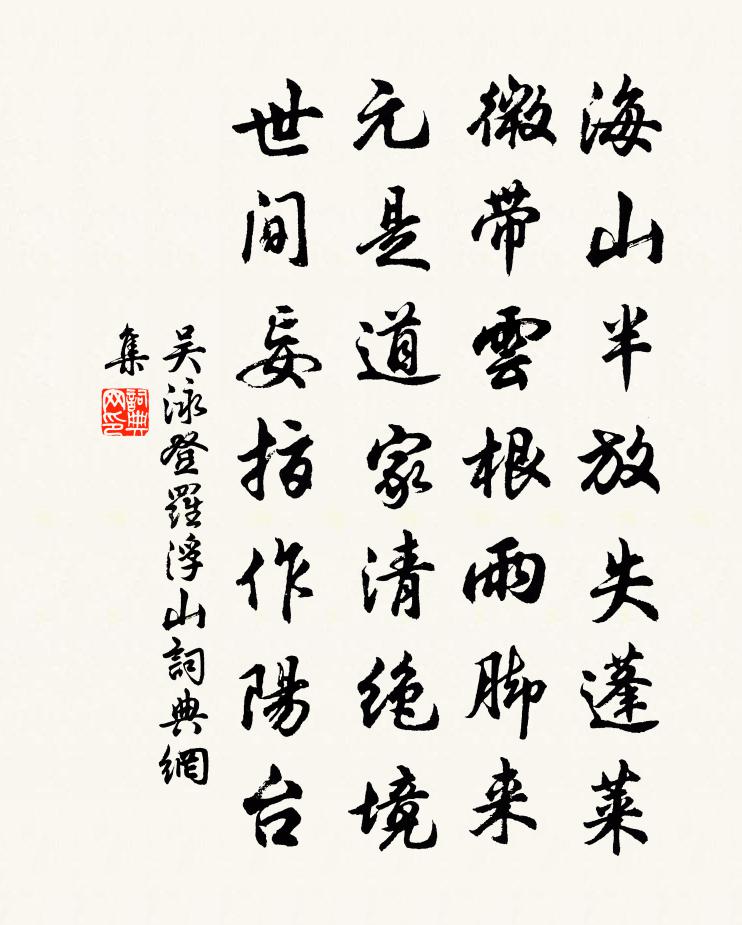 海山半放失蓬莱
微带雲根雨脚来
元是道家清绝境
世间妄指作陽台
吴泳登羅浮山詞典網
集
詞典
网印